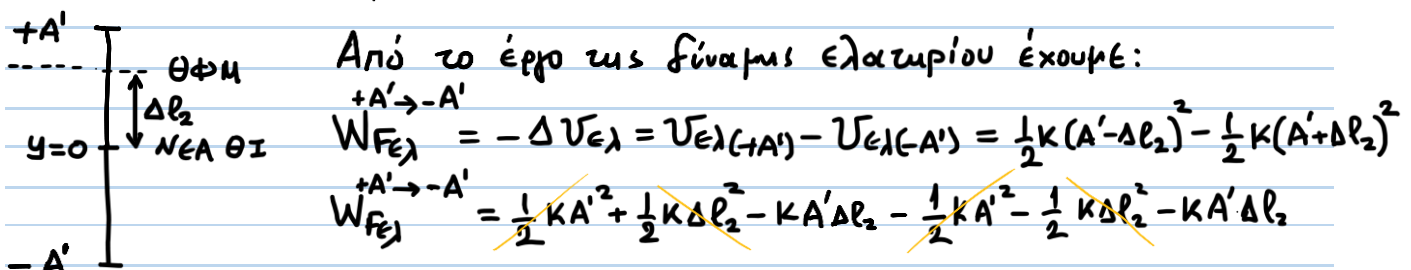 +A'
ΘΦΜ
Δℓ₂
y=0 ΝΕΑ ΘΙ
-A'
Από το έργο της δύναμης ελατηρίου έχουμε:
W_{Fελ}^{+A'→-A'} = -ΔU_{ελ} = U_{ελ(+A')} - U_{ελ(-A')} = ½K(A'-Δℓ₂)² - ½K(A'+Δℓ₂)²
W_{Fελ}^{+A'→-A'} = ½KA'² + ½KΔℓ₂² - KA'Δℓ₂ - ½KA'² - ½KΔℓ₂² - KA'·Δℓ₂